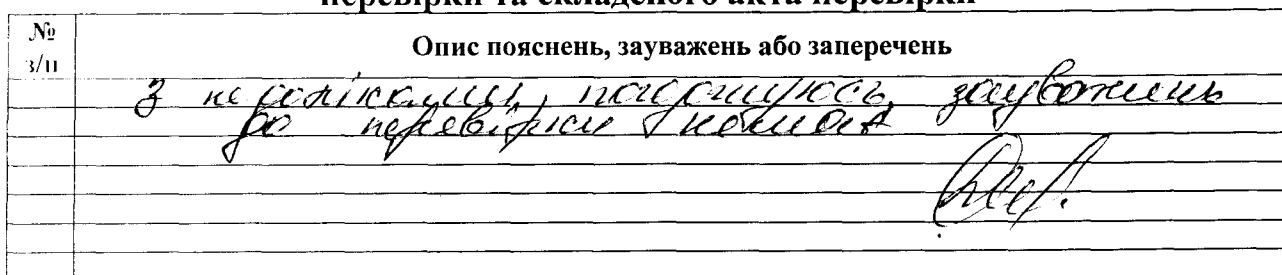 перевірки та складеного акта перевірки
№ з/п
Опис пояснень, зауважень або заперечень
з недоліками погоджуюсь, зауважень
до перевірки немає